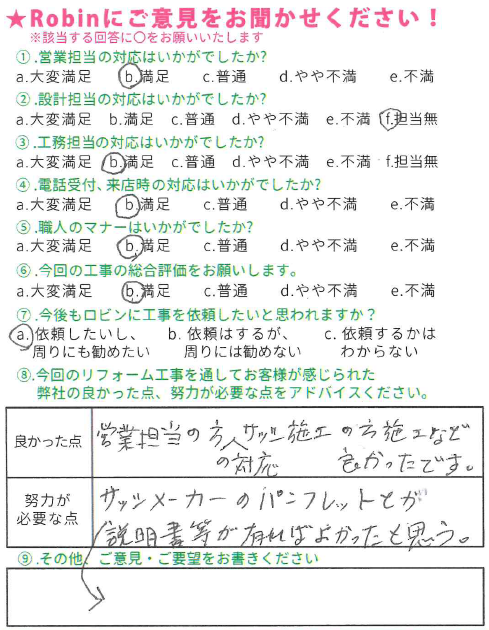 ★Robinにご意見をお聞かせください！
※該当する回答に〇をお願いいたします
①.営業担当の対応はいかがでしたか?
a.大変満足 b.満足 c.普通 d.やや不満 e.不満
②.設計担当の対応はいかがでしたか?
a.大変満足 b.満足 c.普通 d.やや不満 e.不満 f.担当無
③.工務担当の対応はいかがでしたか?
a.大変満足 b.満足 c.普通 d.やや不満 e.不満 f.担当無
④.電話受付、来店時の対応はいかがでしたか?
a.大変満足 b.満足 c.普通 d.やや不満 e.不満
⑤.職人のマナーはいかがでしたか?
a.大変満足 b.満足 c.普通 d.やや不満 e.不満
⑥.今回の工事の総合評価をお願いします。
a.大変満足 b.満足 c.普通 d.やや不満 e.不満
⑦.今後もロビンに工事を依頼したいと思われますか？
a.依頼したいし、 b.依頼はするが、 c.依頼するかは
周りにも勧めたい 周りには勧めない わからない
⑧.今回のリフォーム工事を通してお客様が感じられた
弊社の良かった点、努力が必要な点をアドバイスください。
良かった点
営業担当の方、サッシ施工の方施工など
の対応 良かったです。
努力が
必要な点
サッシメーカーのパンフレットとか
説明書等が有ればよかったと思う。
⑨.その他、ご意見・ご要望をお書きください